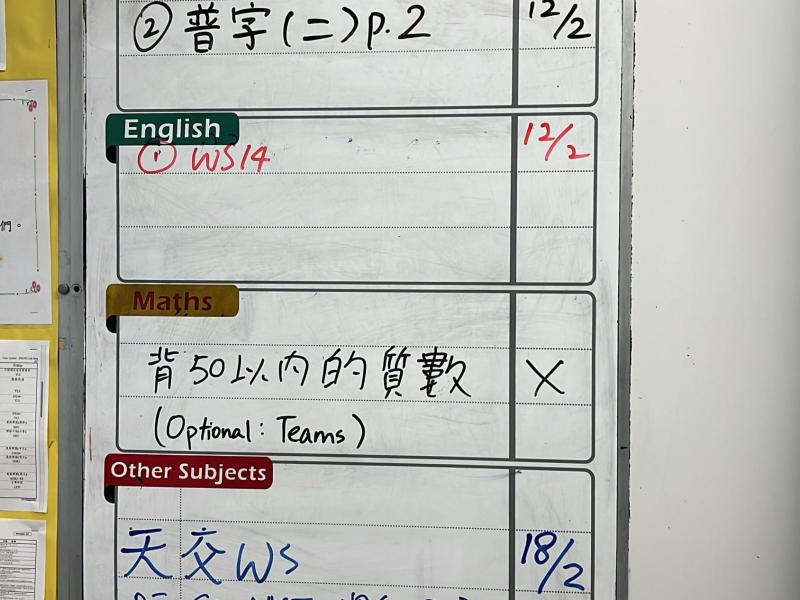 ② 普字(二)p.2 12/2
English
① WS14 12/2
Maths
背50以內的質數 X
(Optional: Teams)
Other Subjects
天交WS 18/2
們。